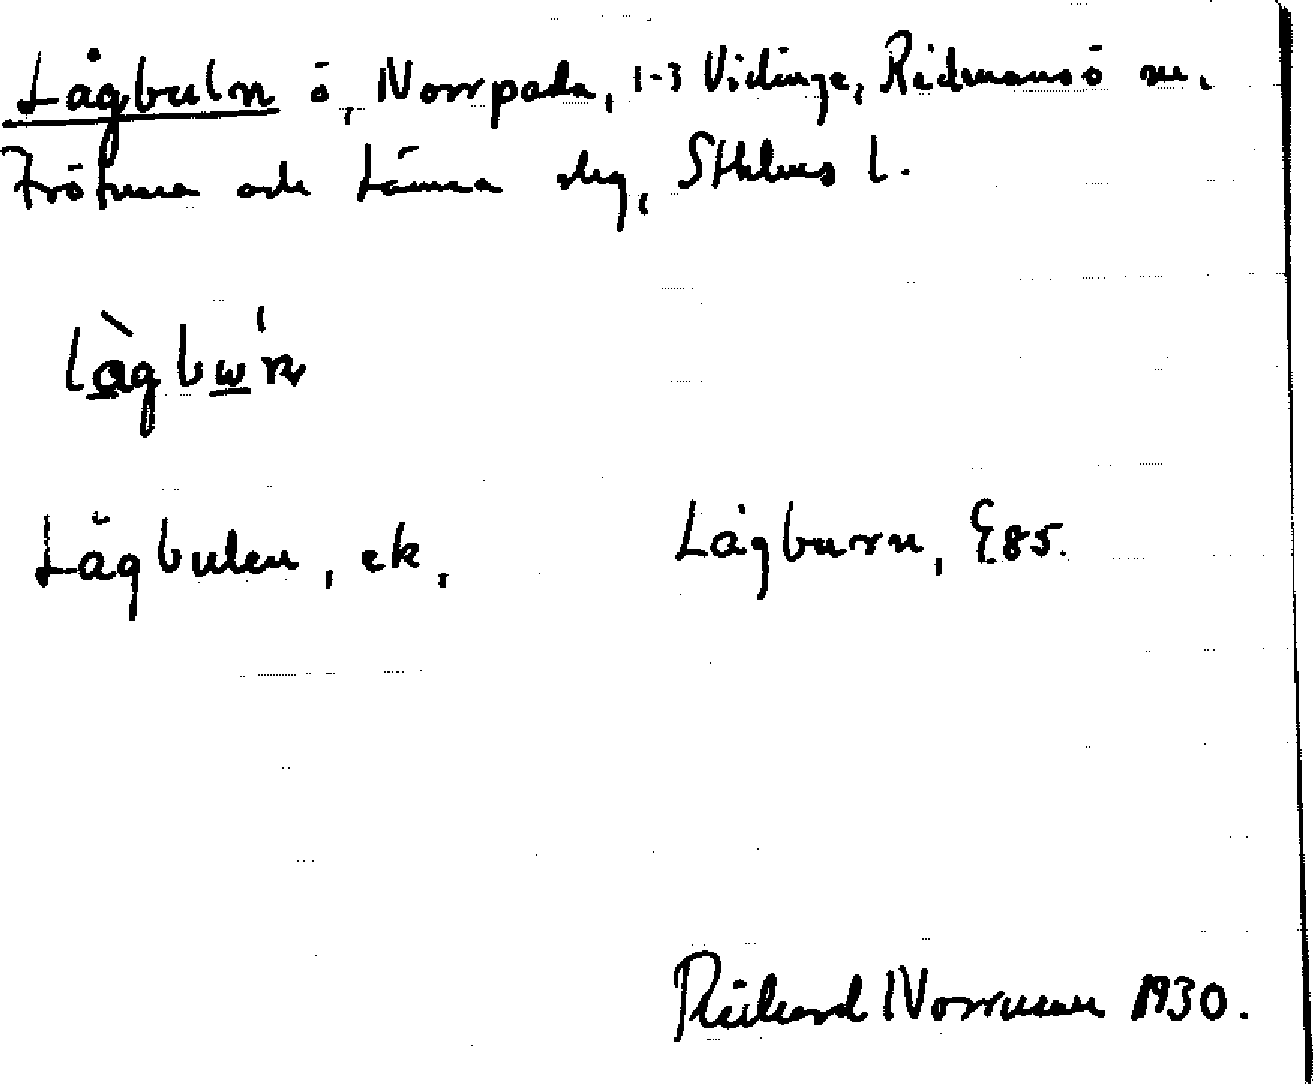 Lågbuln ö, Norrpada, 1-3 Vidinge, Rådmansö sn.
Frötuna och Länna skg, Sthlms l.
làgbu'n
Lågbulen, ek,
Lågburn, E85.
Rickard Norrman 1930.